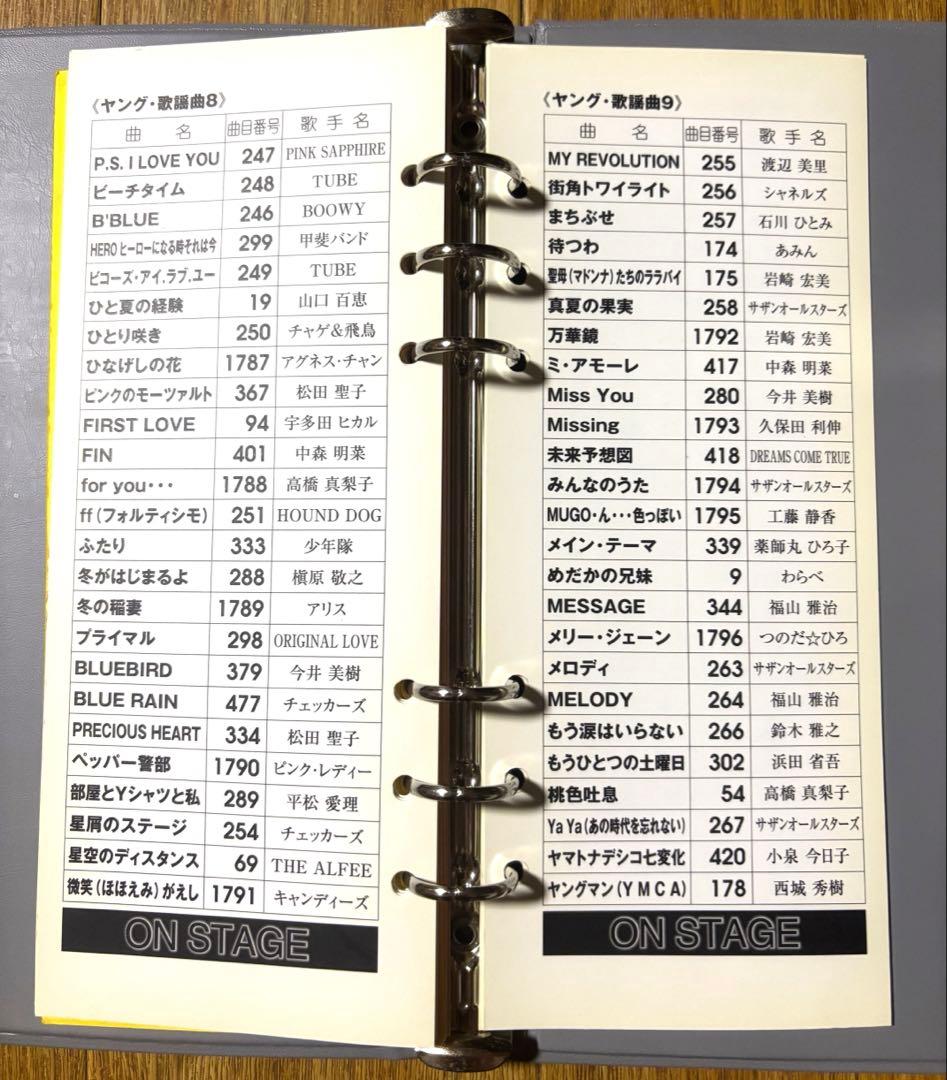 《ヤング・歌謡曲8》
曲 名 曲目番号 歌手名
P.S. I LOVE YOU 247 PINK SAPPHIRE
ビーチタイム 248 TUBE
B'BLUE 246 BOOWY
HERO ヒーローになる時それは今 299 甲斐バンド
ビコーズ・アイ.ラブ.ユー 249 TUBE
ひと夏の経験 19 山口 百恵
ひとり咲き 250 チャゲ&飛鳥
ひなげしの花 1787 アグネス・チャン
ピンクのモーツァルト 367 松田 聖子
FIRST LOVE 94 宇多田 ヒカル
FIN 401 中森 明菜
for you・・・ 1788 高橋 真梨子
ff(フォルティシモ) 251 HOUND DOG
ふたり 333 少年隊
冬がはじまるよ 288 槇原 敬之
冬の稲妻 1789 アリス
プライマル 298 ORIGINAL LOVE
BLUEBIRD 379 今井 美樹
BLUE RAIN 477 チェッカーズ
PRECIOUS HEART 334 松田 聖子
ペッパー警部 1790 ピンク・レディー
部屋とYシャツと私 289 平松 愛理
星屑のステージ 254 チェッカーズ
星空のディスタンス 69 THE ALFEE
微笑(ほほえみ)がえし 1791 キャンディーズ
ON STAGE
《ヤング・歌謡曲9》
曲 名 曲目番号 歌手名
MY REVOLUTION 255 渡辺 美里
街角トワイライト 256 シャネルズ
まちぶせ 257 石川 ひとみ
待つわ 174 あみん
聖母(マドンナ)たちのララバイ 175 岩崎 宏美
真夏の果実 258 サザンオールスターズ
万華鏡 1792 岩崎 宏美
ミ・アモーレ 417 中森 明菜
Miss You 280 今井 美樹
Missing 1793 久保田 利伸
未来予想図 418 DREAMS COME TRUE
みんなのうた 1794 サザンオールスターズ
MUGO・ん・・・色っぽい 1795 工藤 静香
メイン・テーマ 339 薬師丸 ひろ子
めだかの兄妹 9 わらべ
MESSAGE 344 福山 雅治
メリー・ジェーン 1796 つのだ☆ひろ
メロディ 263 サザンオールスターズ
MELODY 264 福山 雅治
もう涙はいらない 266 鈴木 雅之
もうひとつの土曜日 302 浜田 省吾
桃色吐息 54 高橋 真梨子
Ya Ya(あの時代を忘れない) 267 サザンオールスターズ
ヤマトナデシコ七変化 420 小泉 今日子
ヤングマン(YMCA) 178 西城 秀樹
ON STAGE